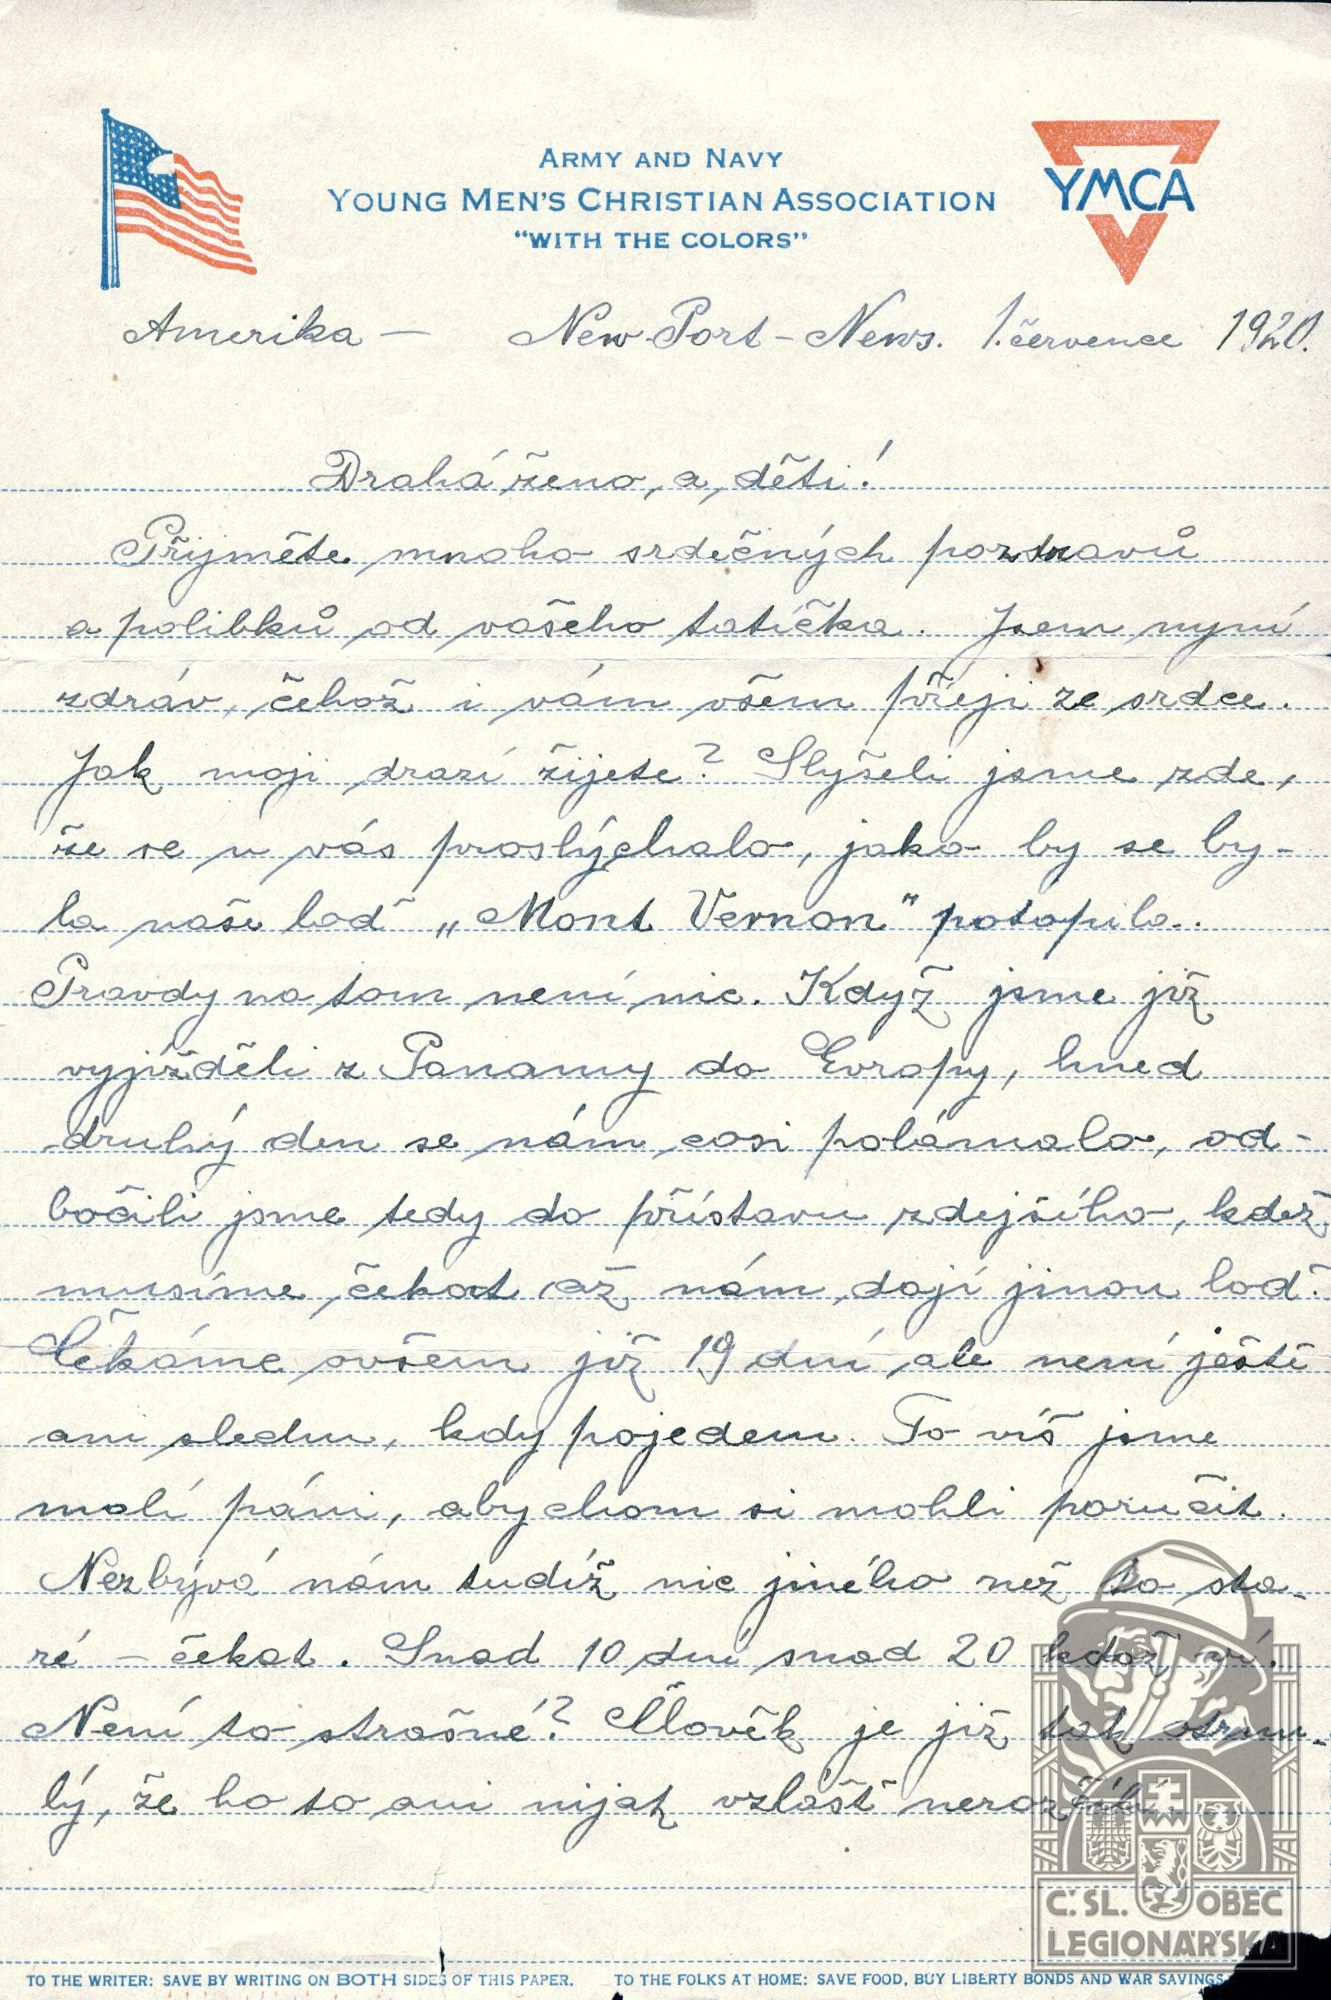 ARMY AND NAVY
YOUNG MEN'S CHRISTIAN ASSOCIATION
"WITH THE COLORS"
YMCA
Amerika — New-Port-News. 1. července 1920.
Drahá ženo, a, děti!
Přijměte mnoho srdečných pozdravů
a polibků od vašeho tatíčka. Jsem nyní
zdráv, čehož i vám všem přeji ze srdce.
Jak moji drazí žijete? Slyšeli jsme zde,
že se u vás proslýchalo, jako by se by-
la naše loď „Mont Vernon" potopila.
Pravdy na tom není nic. Když jsme již
vyjížděli z Panamy do Evropy, hned
druhý den se nám cosi polámalo, od-
bočili jsme tedy do přístavu zdejšího, kdež
musíme čekat až nám dají jinou loď.
Čekáme ovšem již 19 dní ale není ještě
ani sledu, kdy pojedem. To víš jsme
malí páni, abychom si mohli poručit.
Nezbývá nám tudíž nic jiného než to sta-
ré – čekat. Snad 10 dní snad 20 kdož ví.
Není to strašné? Člověk je již tak otrnu-
lý, že ho to ani nijak vzlášť nerozčílí.
Č.SL. OBEC
LEGIONÁŘSKÁ
TO THE WRITER: SAVE BY WRITING ON BOTH SIDES OF THIS PAPER. TO THE FOLKS AT HOME: SAVE FOOD, BUY LIBERTY BONDS AND WAR SAVINGS